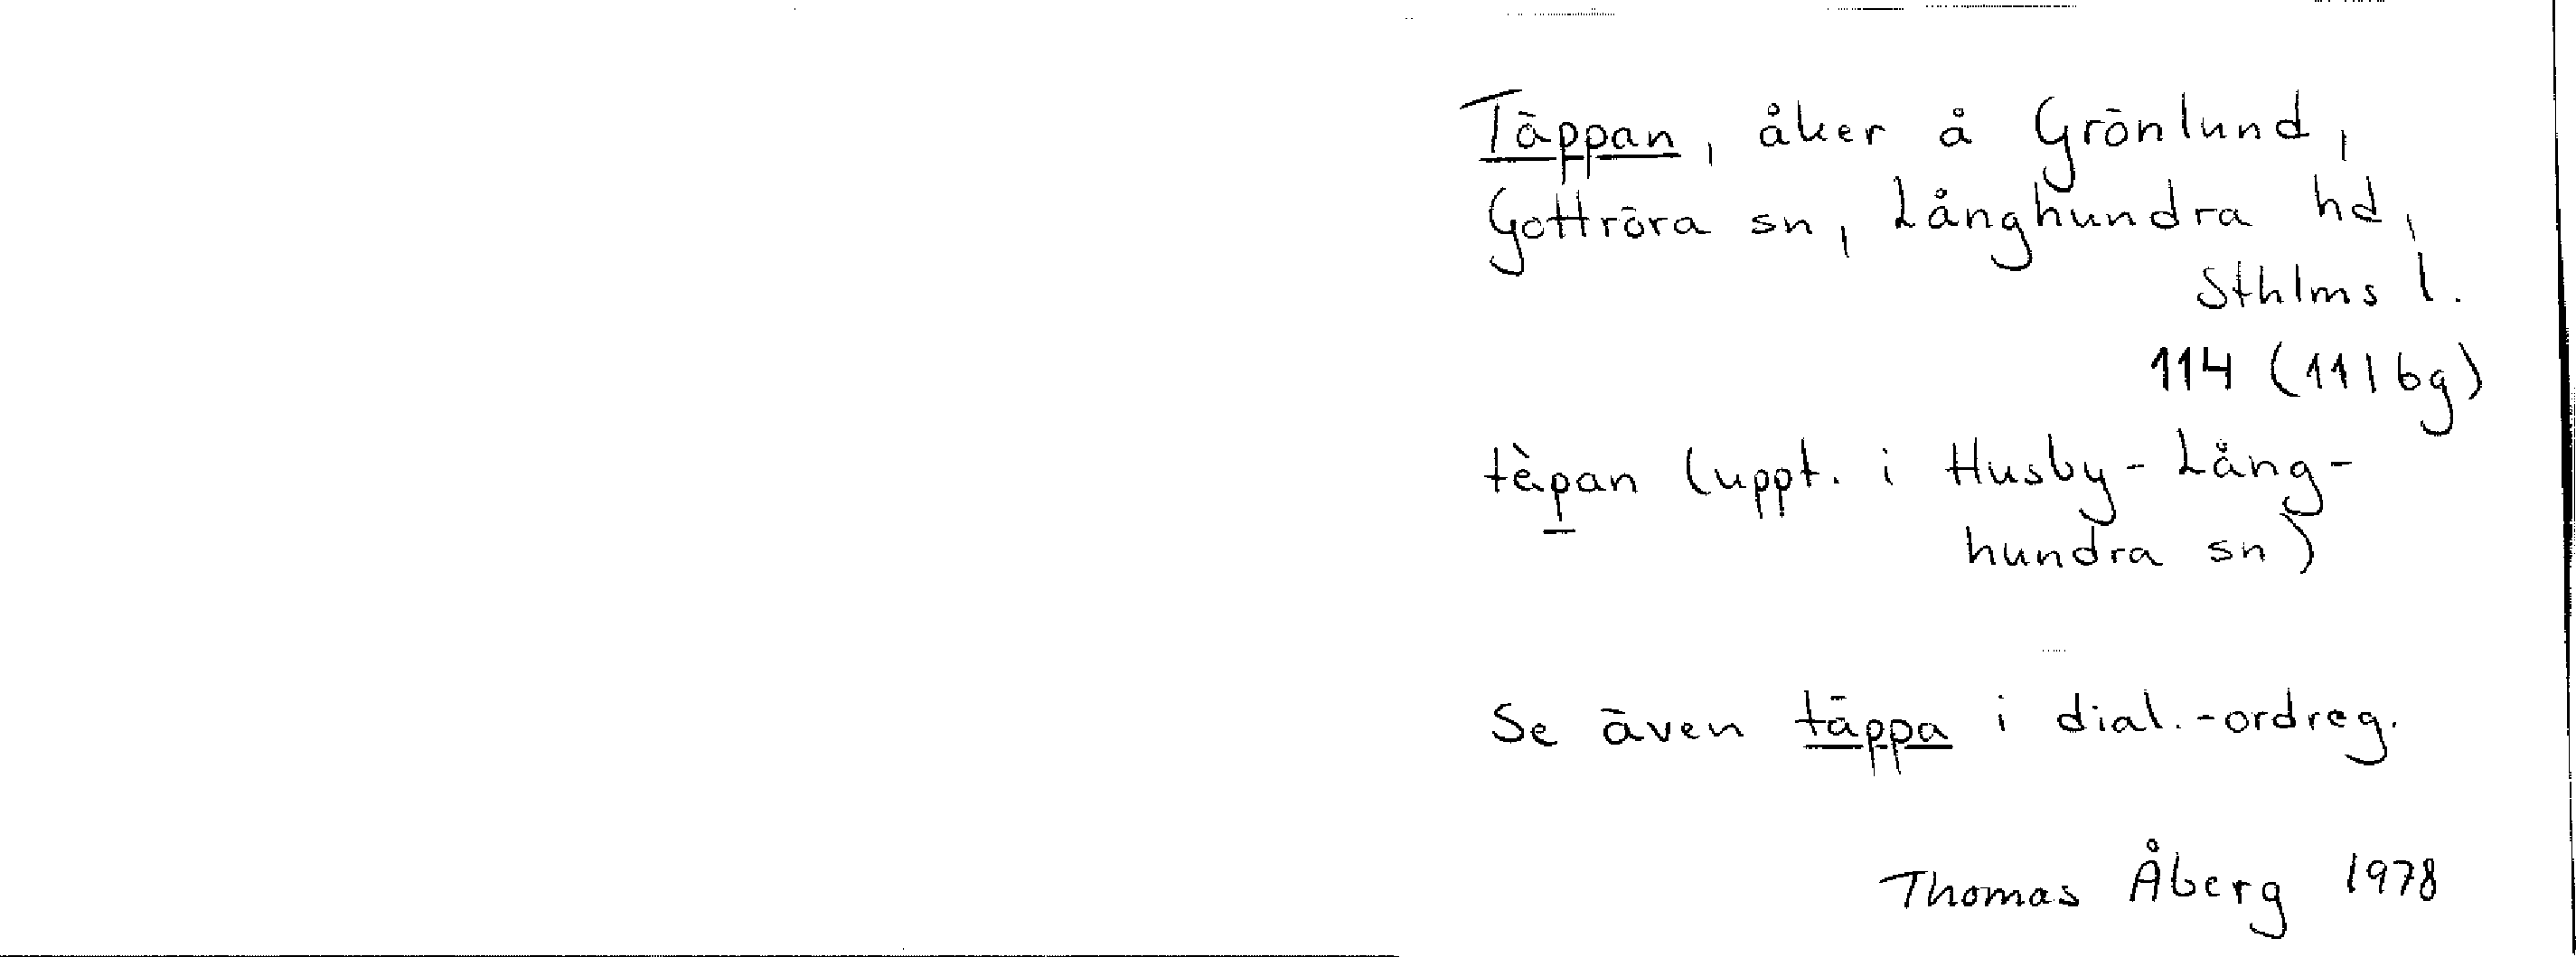 Täppan, åker å Grönlund,
Gottröra sn, Långhundra hd,
Sthlms l.
114 (11I6g)
tèpan (uppt. i Husby-Lång-
hundra sn)
Se även täppa i dial.-ordreg.
Thomas Åberg 1978